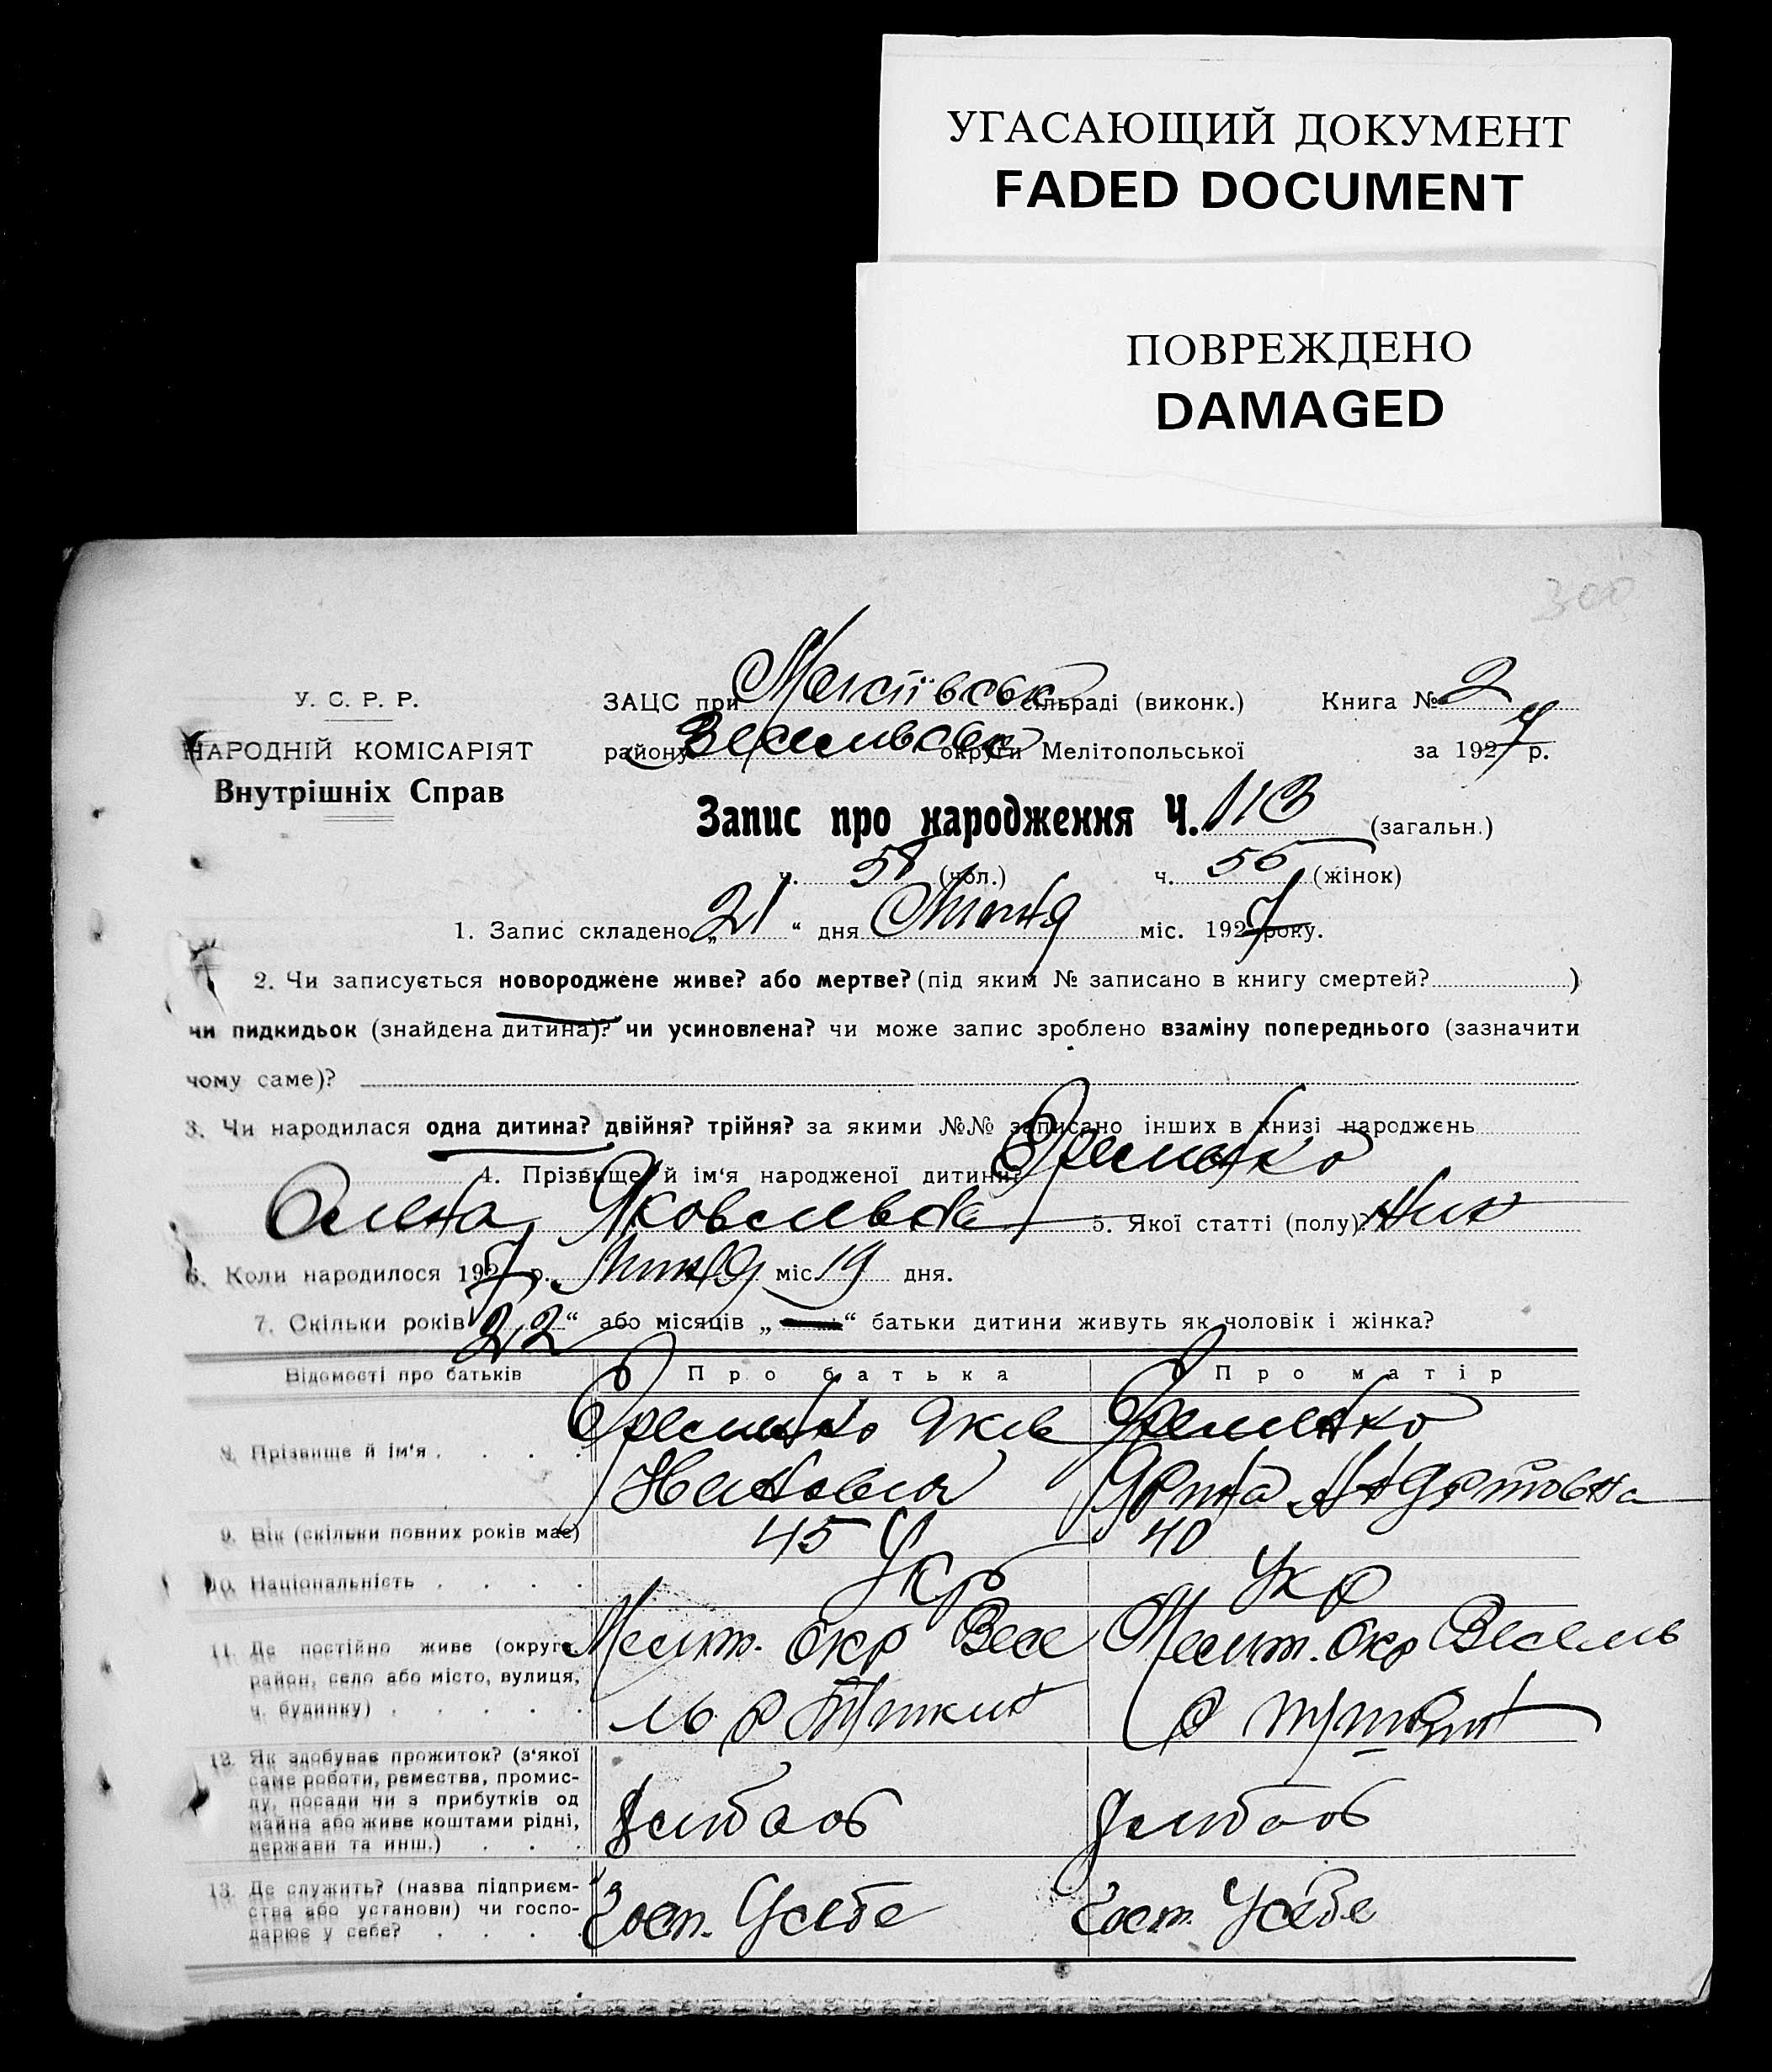 УГАСАЮЩИЙ ДОКУМЕНТ
FADED DOCUMENT
ПОВРЕЖДЕНО
DAMAGED
300
У. С. Р. Р.
НАРОДНІЙ КОМІСАРІЯТ
Внутрішніх Справ
ЗАЦС при сільраді (виконк.) Книга № 2
району округи Мелітопольської за 1927 р.
Запис про народження Ч. 113 (загальн.)
ч. 58 (чол.) ч. 55 (жінок)
1. Запис складено „21“ дня Липня міс. 1927 року.
2. Чи записується новороджене живе? або мертве? (під яким № записано в книгу смертей? )
чи пидкидьок (знайдена дитина)? чи усиновлена? чи може запис зроблено взаміну попереднього (зазначити
чому саме)?
3. Чи народилася одна дитина? двійня? трійня? за якими №№ записано інших в книзі народжень
4. Прізвище й ім'я народженої дитини? Яременко
Олена Яковельвна 5. Якої статті (полу)? Жин
6. Коли народилося 1927 р. Липня міс. 19 дня.
7. Скільки років „22“ або місяців „ “ батьки дитини живуть як чоловік і жінка?
Відомості про батьків Про батька Про матір
8. Прізвище й ім'я . . . . Яременко Яків Яременко
9. Вік (скільки повних років має) 45 40
10. Національність . . . . Укр Укр
11. Де постійно живе (округа, Мелит. окр Весе Мелит. окр Весель
район, село або місто, вулиця,
ч. будинку) . . . . .
12. Як здобуває прожиток? (з'якої
саме роботи, ремества, промис-
лу, посади чи з прибутків од
майна або живе коштами рідні, Хлибооб Хлибооб
держави та инш.) . . .
13. Де служить? (назва підприєм-
ства або установи) чи госпо- Госп. Усебе Госп. Усебе
дарює у себе? . . . .